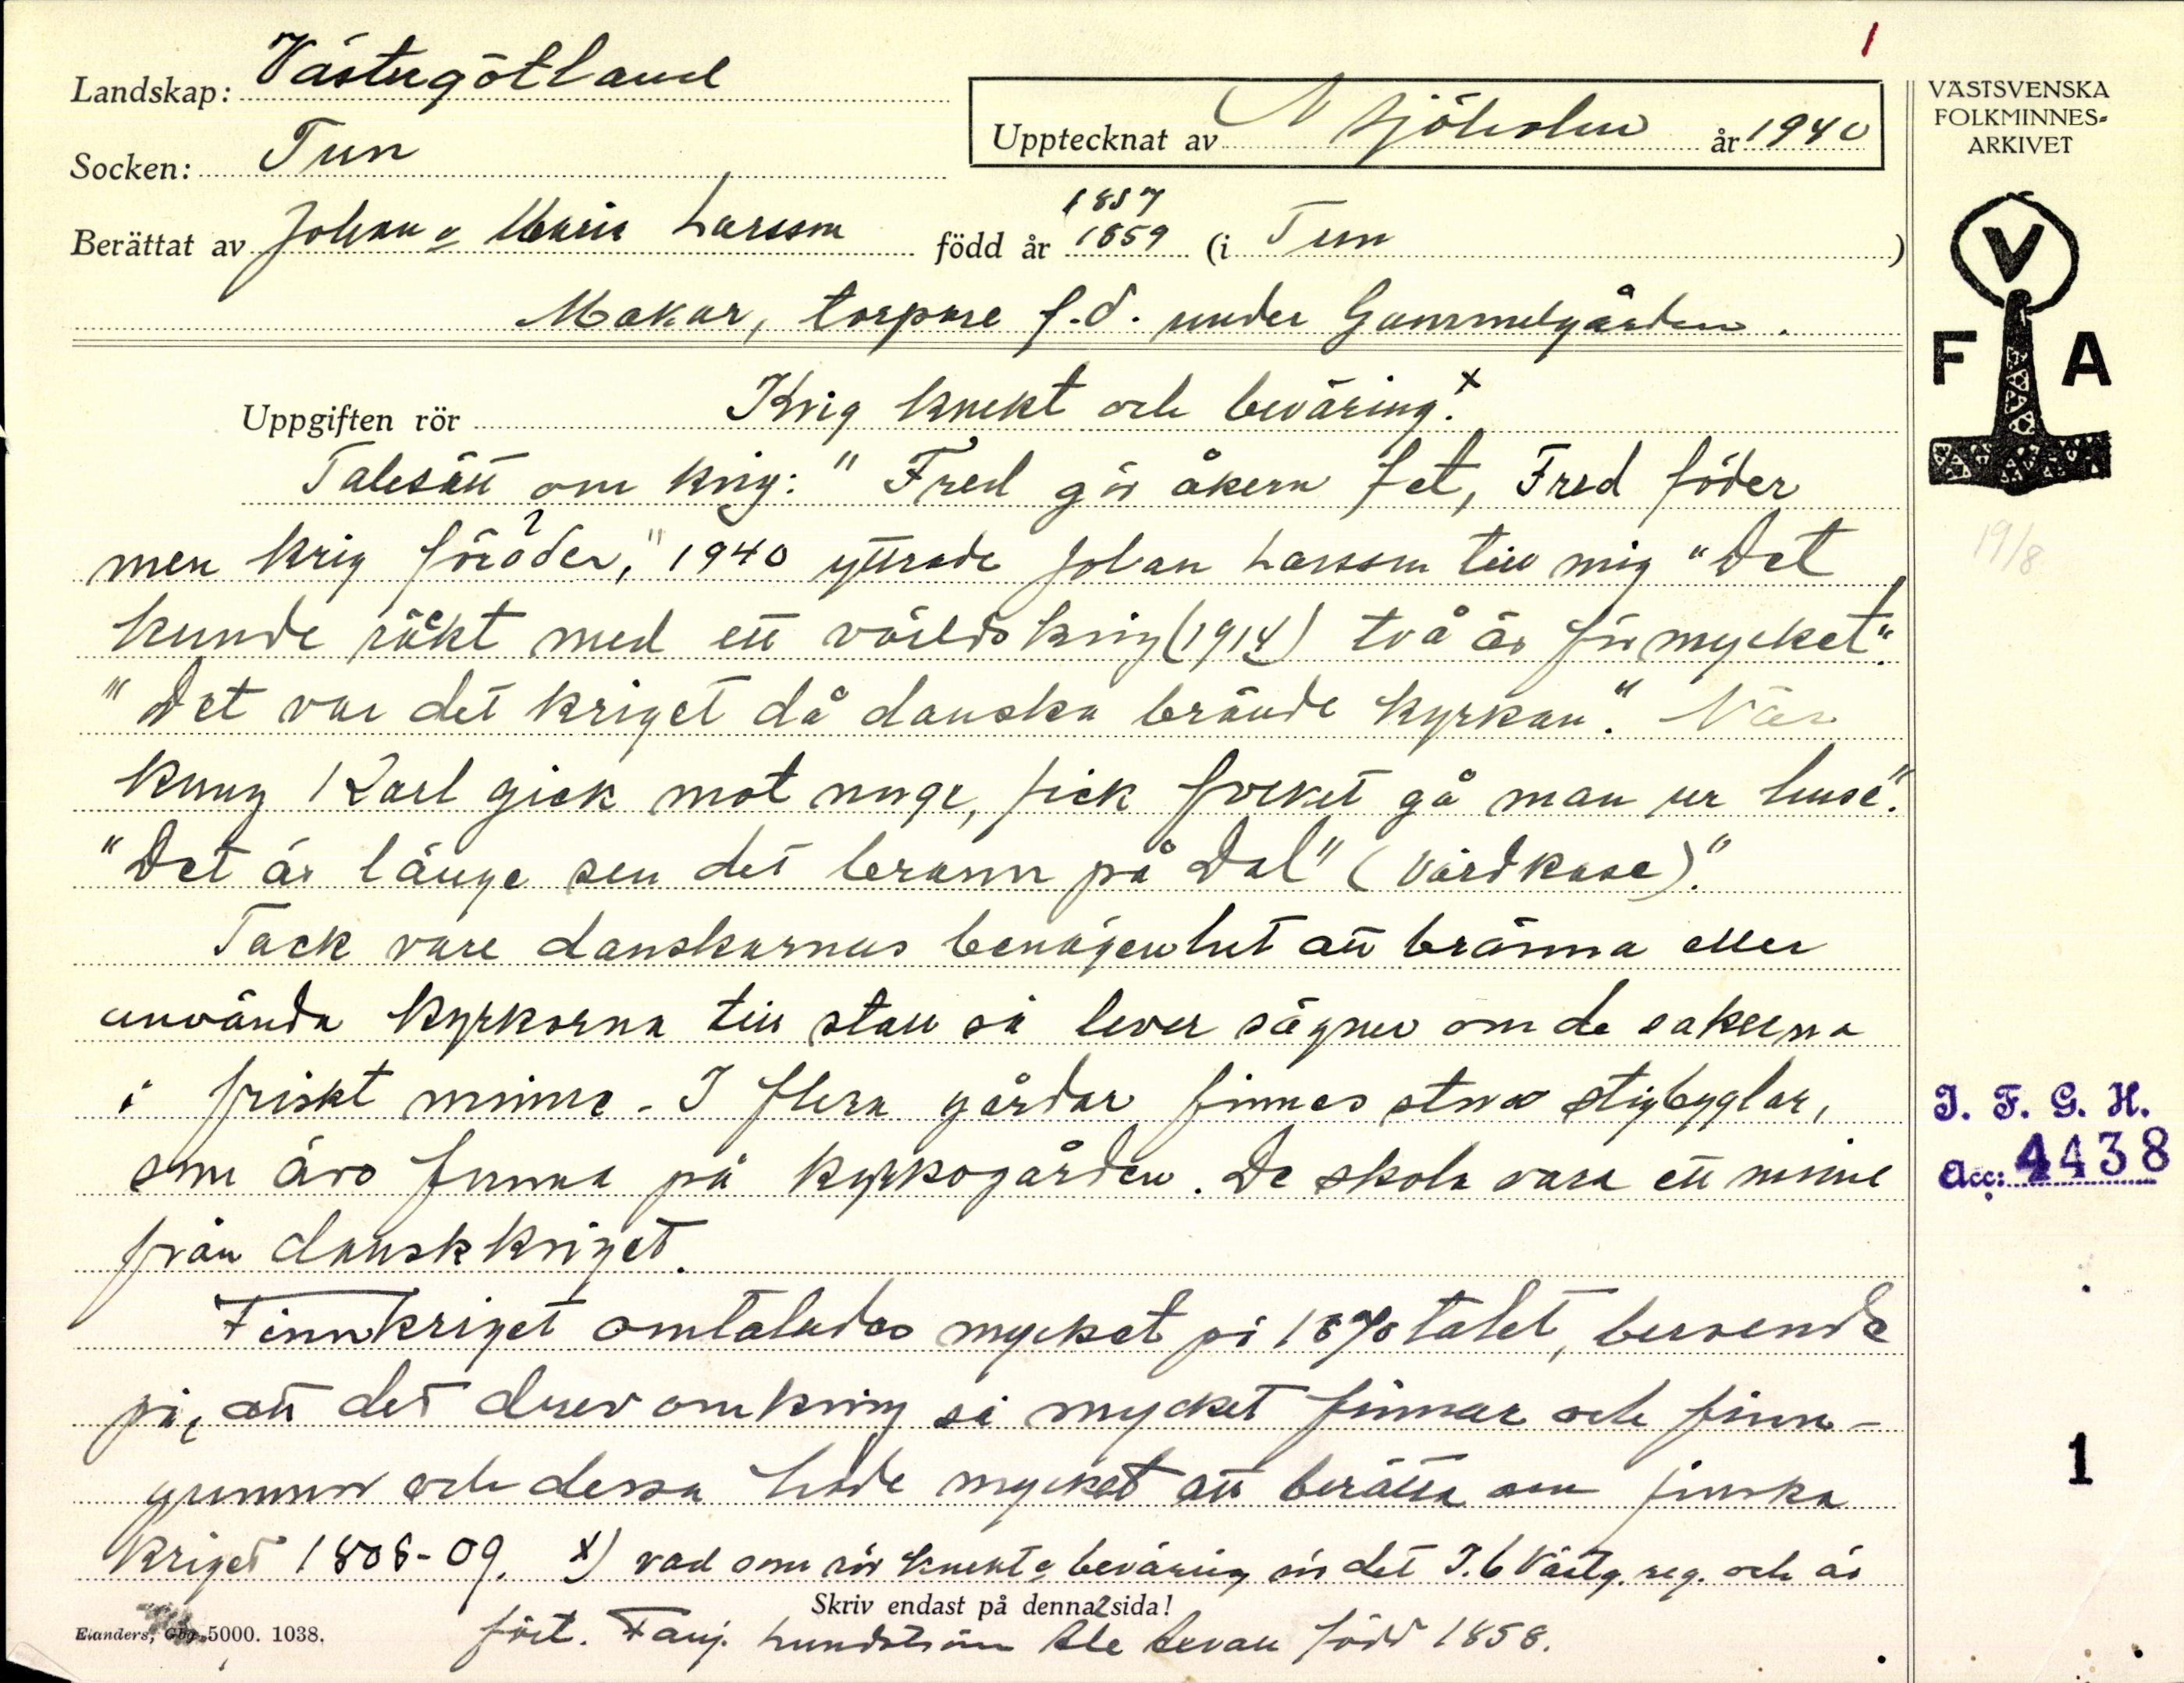 1
Landskap: Västergötland
Upptecknat av N Sjöholm år 1940
VÄSTSVENSKA
FOLKMINNES-
ARKIVET
Socken: Tun
1857
Berättat av Johan o Maria Larsson född år 1859 (i Tun )
Makar, torpare f.d. under Gammelgården.
V
F A
Uppgiften rör Krig knekt och beväring.x
Talesätt om krig: "Fred gör åkern fet, Fred föder
men krig föröder," 1940 yttrade Johan Larsson till mig "Det
19/8
kunde räkt med ett världskrig (1914) två är för mycket".
"Det var det kriget då danska brände kyrkan". När
kung Karl gick mot norge, fick folket gå man ur huse".
"Det är länge sen det brann på Dal" (Vårdkase)."
Tack vare danskarnas benägenhet att bränna eller
använda kyrkorna till stall så lever sägner om de sakerna
i friskt minne. I flera gårdar finnes stora stigbyglar,
som äro funna på kyrkogården. De skola vara ett minne
från danskkriget.
I. F. G. H.
Acc: 4438
Finnkriget omtalades mycket på 1870 talet, beroende
på, att det drev omkring så mycket finnar och finn-
gummor och dessa hade mycket att berätta om finska
1
kriget 1808-09. x) vad som rör knekt o beväring är det I.6 Västg. reg. och är
Skriv endast på denna sida!
2
Elanders, Gbg. 5000. 1038.
fört. Fanj. Lundström Ale Levan född 1858.